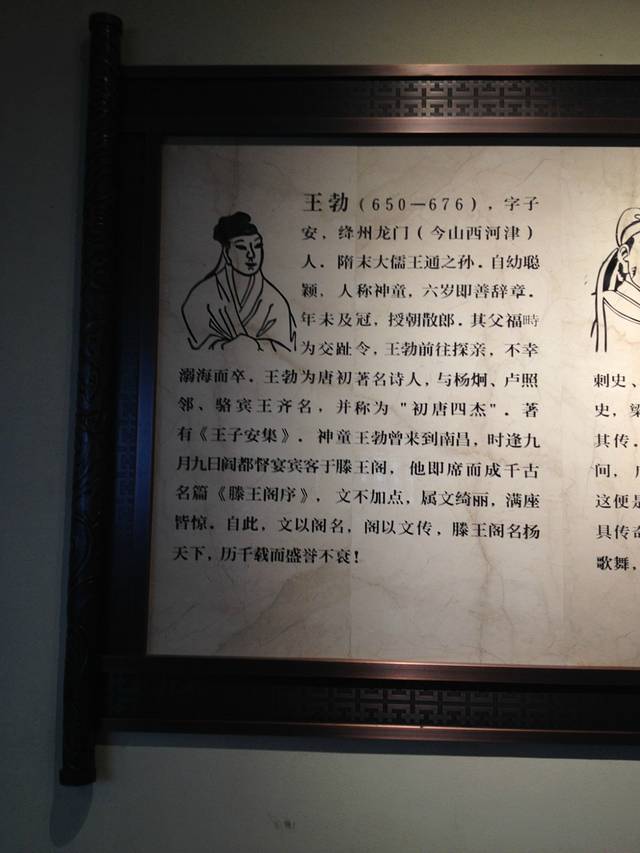 王勃（650—676），字子
安，绛州龙门（今山西河津）
人．隋末大儒王通之孙．自幼聪
颖，人称神童，六岁即善辞章．
年未及冠，授朝散郎．其父福畤
为交趾令，王勃前往探亲，不幸
溺海而卒．王勃为唐初著名诗人，与杨炯、卢照
邻、骆宾王齐名，并称为"初唐四杰"．著
有《王子安集》．神童王勃曾来到南昌，时逢九
月九日阎都督宴宾客于滕王阁，他即席而成千古
名篇《滕王阁序》，文不加点，属文绮丽，满座
皆惊．自此，文以阁名，阁以文传，滕王阁名扬
天下，历千载而盛誉不衰！
刺史、
史，梁
其传．
间，
这便是
具传奇
歌舞，